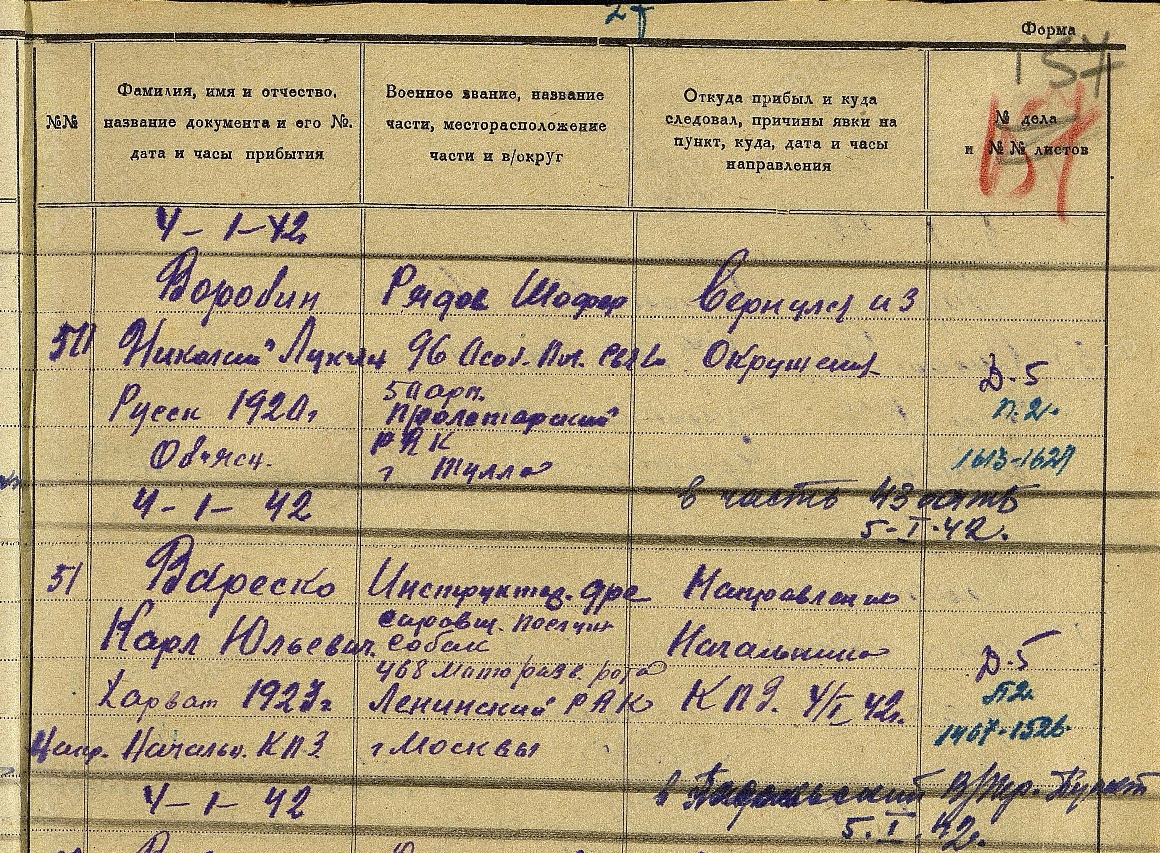 27
Форма
157
157
№№
Фамилия, имя и отчество,
название документа и его №.
дата и часы прибытия
Военное звание, название
части, месторасположение
части и в/округ
Откуда прибыл и куда
следовал, причины явки на
пункт, куда, дата и часы
направления
№ дела
и №№ листов
4-1-42
Воробин
Николай Лукич
Русск 1920г
Объясн.
4-1-42
Рядов Шофер
96 Особ. Пол.
50 арм.
Пролетарский
РВК
г Тулла
Вернулся из
Окружения
в часть 43
5-I-42.
Д-5
п.2.
51
Вареско
Карл Юльевич.
Харват
Напр. Начальн. КПЗ
4-1-42
Инструктор. дре
сировщ.
собак
468 рота
Ленинский РВК
г Москвы
Направлению
Начальника
КПЗ. 4/I 42г.
в Подольский В/Пер. Пункт
5.I.42г.
Д-5
п2.